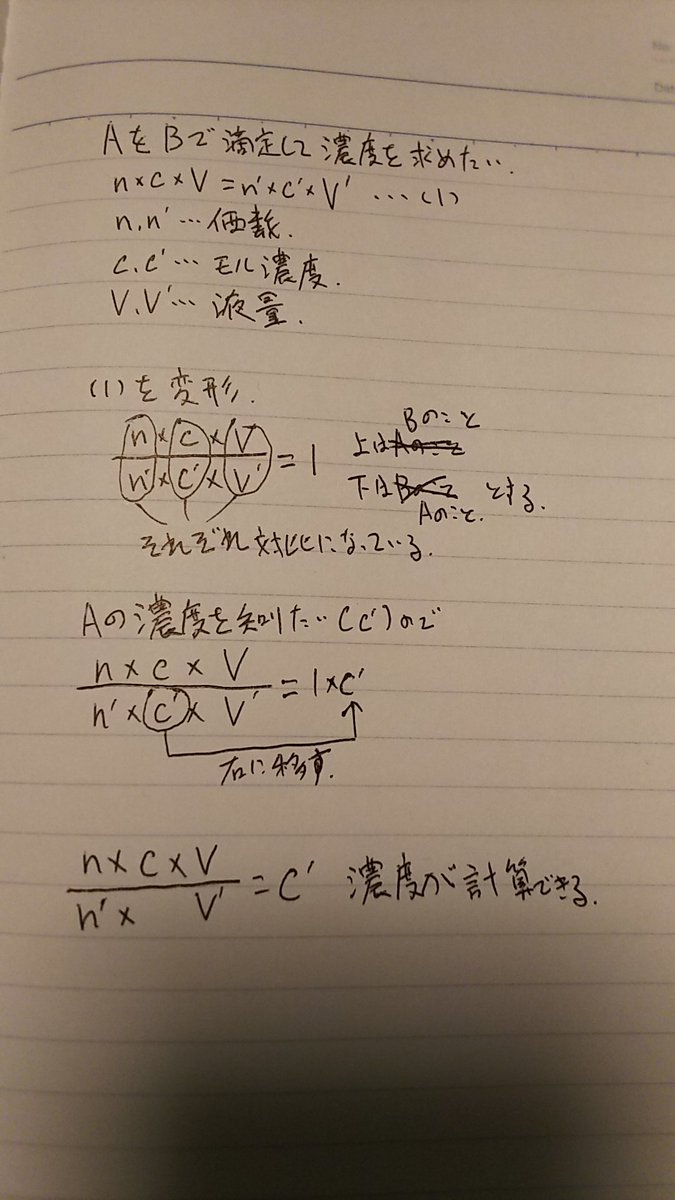 AをBで滴定して濃度を求めたい.
n×c×V=n'×c'×V' …(1)
n.n'…価数.
c.c'…モル濃度.
V.V'…液量.
(1)を変形.
n×c×V
n'×c'×V'
=1
Bのこと
上はAのこと
下はBのこと とする.
Aのこと.
それぞれ対比になっている.
Aの濃度を知りたい(c')ので
n×c×V
n'×c'×V'
=1×c'
右に移す.
n×c×V
n'× V'
=C' 濃度が計算できる.
No
Dat